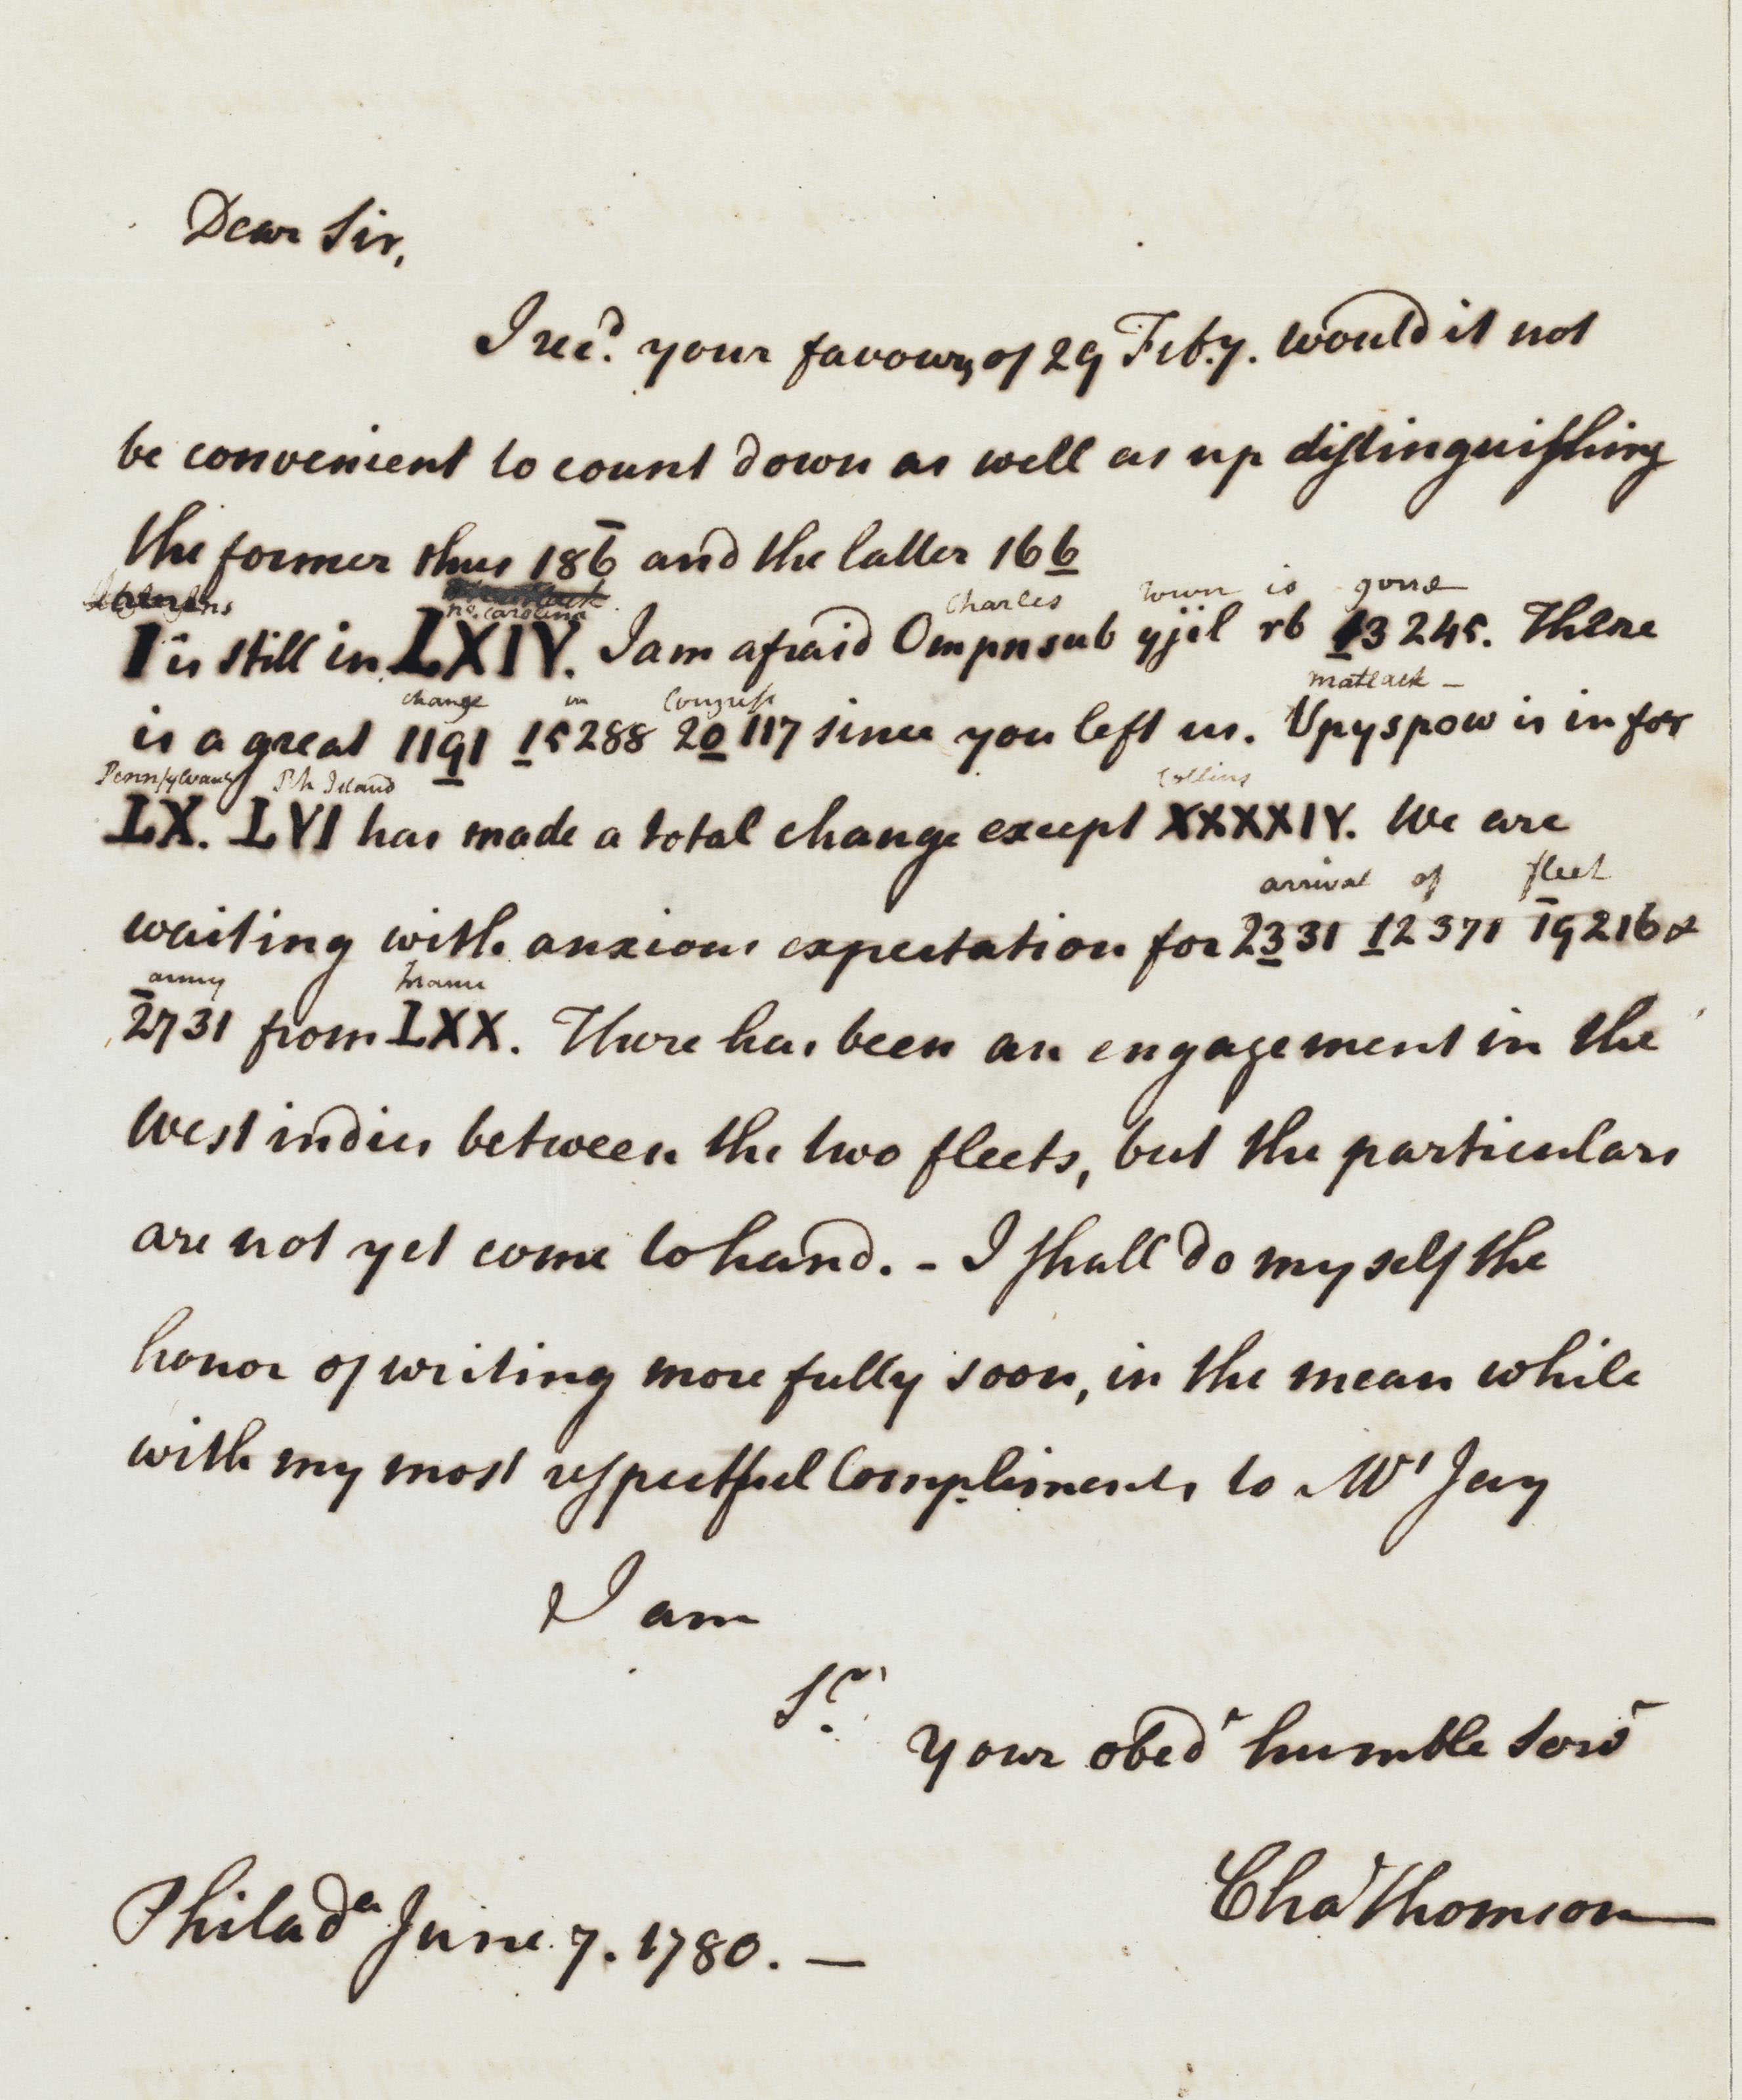 Dear Sir,
I recd. your favour, of 29 Feb.y. Would it not
be convenient to count down as well as up distinguishing
the former thus 186̅ and the latter 166̲
no. carolina Charles town is gone
I is still in LXIV. I am afraid Ompnsub yjil rb 1̲3 245. There
change in Congress matlack –
is a great 119̲1 1̲5 288 20̲ 117 since you left us. Upyspow is in for
Pennsylvany Rh Island Collins
LX. LVI has made a total change except XXXXIV. We are
arrival of fleet
waiting with anxious expectation for 23̲31 1̲2 371 1̅9 216 &
army france
2̅731 from LXX. There has been an engagement in the
West indies between the two fleets, but the particulars
are not yet come to hand. - I shall do myself the
honor of writing more fully soon, in the mean while
with my most respectful Compliments to Mrs Jay
I am
Sr.
Your obedt humble servt
Chas Thomson
Philada June 7. 1780. —